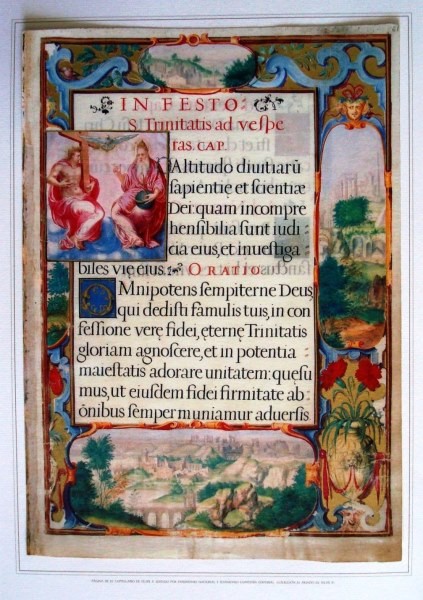 IN FESTO
S. Trinitatis ad veſpe
ras. CAP.
Altitudo diuitiarū
ſapientię et ſcientiæ
Dei: quam incompre
henſibilia ſunt iudi
cia eius, et inueſtiga
biles vię eius. ORATIO.
OMnipotens ſempiterne Deus,
qui dediſti famulis tuis, in con
feſſione verę fidei, eternę Trinitatis
gloriam agnoſcere, et in potentia
maieſtatis adorare unitatem: quęſu
mus, ut eiuſdem fidei firmitate ab
ōnibus ſemper muniamur aduerſis